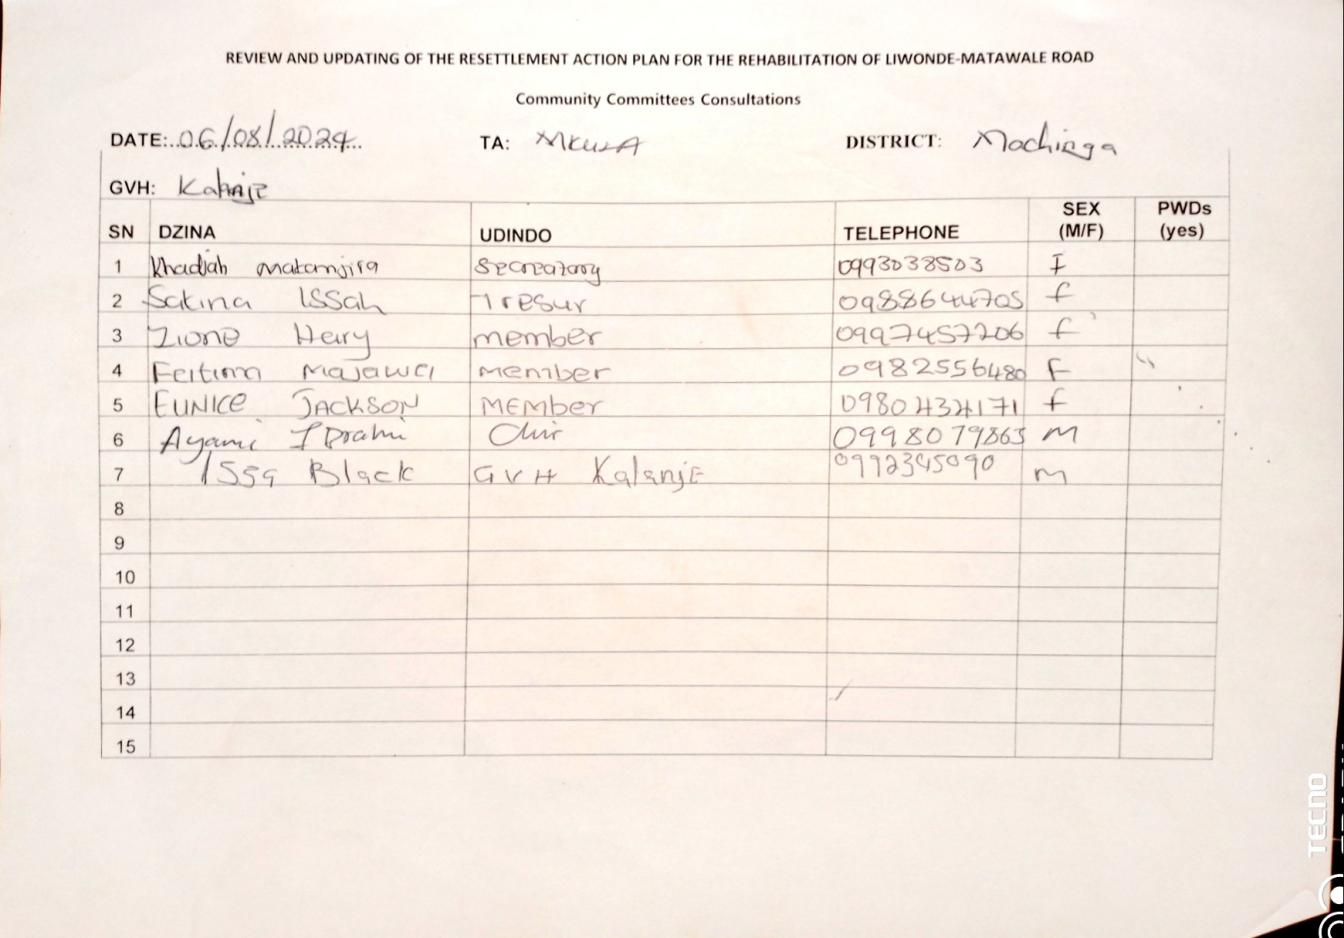 REVIEW AND UPDATING OF THE RESETTLEMENT ACTION PLAN FOR THE REHABILITATION OF LIWONDE-MATAWALE ROAD
Community Committees Consultations
DATE:..06/08/2024.. TA: MKULA DISTRICT: Machinga
GVH: Kalanje
SN DZINA UDINDO TELEPHONE SEX (M/F) PWDs (yes)
1 Khadjah matamjira Secreatory 0993038503 F
2 Sakina ISSah Tresur 0988644705 f
3 Zione Hery member 0997457206 f
4 Fatima Majawa member 0982556480 F
5 EUNICE JACKSON MEMber 0980434171 f
6 Ayami Ibrahi Chir 0998079863 m
7 ISSa Black GVH Kalanje 0992345090 m
8
9
10
11
12
13
14
15
TECNO